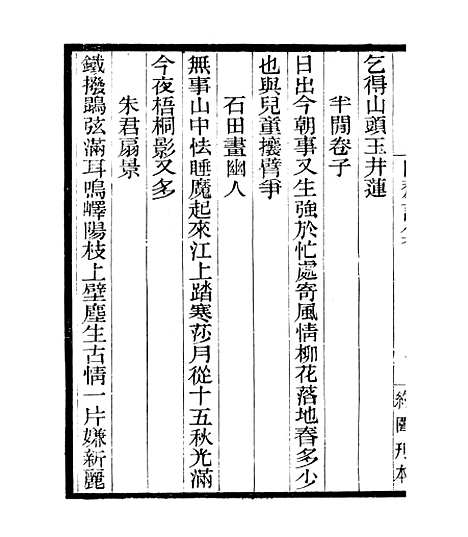 乞得山頭玉井蓮
半閒卷子
日出今朝事又生強於忙處寄風情柳花落地春多少
也與兒童攘臂爭
石田畫幽人
無事山中怯睡魔起來江上踏寒莎月從十五秋光滿
今夜梧桐影又多
朱君扇景
鐵撥鵾弦滿耳鳴嶧陽枝上壁塵生古情一片嫌新麗